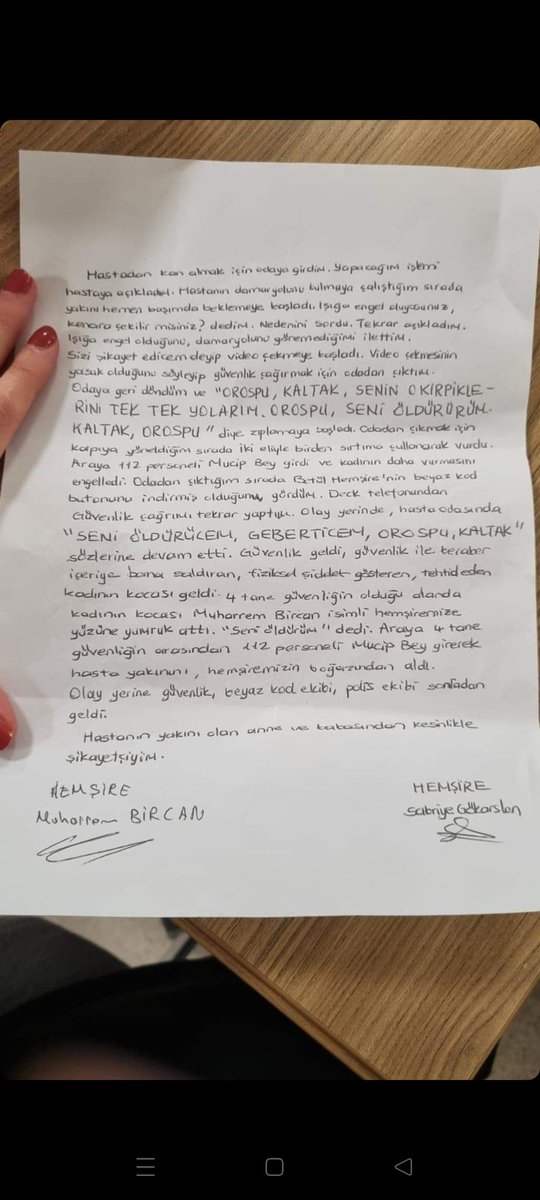 Hastadan kan almak için odaya girdim. Yapacağım işlemi
hastaya açıkladım. Hastanın damaryolunu bulmaya çalıştığım sırada
yakını hemen başımda beklemeye başladı. Işığa engel oluyosunuz,
kenara çekilir misiniz? dedim. Nedenini sordu. Tekrar açıkladım.
Işığa engel olduğunu, damaryolunu göremediğimi ilettim.
Sizi şikayet edicem deyip video çekmeye başladı. Video çekmesinin
yasak olduğunu söyleyip güvenlik çağırmak için odadan çıktım.
Odaya geri döndüm ve "OROSPU, KALTAK, SENİN O KİRPİKLE-
RİNİ TEK TEK YOLARIM. OROSPU, SENİ ÖLDÜRÜRÜM.
KALTAK, OROSPU" diye zıplamaya başladı. Odadan çıkmak için
kapıya yöneldiğim sırada iki eliyle birden sırtıma çullanarak vurdu.
Araya 112 personeli Mucip Bey girdi ve kadının daha vurmasını
engelledi. Odadan çıktığım sırada Betül Hemşire'nin beyaz kod
butonunu indirmiş olduğunu gördüm. Deck telefonundan
Güvenlik çağrımı tekrar yaptım. Olay yerinde, hasta odasında
"SENİ ÖLDÜRÜCEM, GEBERTİCEM, OROSPU, KALTAK"
sözlerine devam etti. Güvenlik geldi, güvenlik ile beraber
içeriye bana saldıran, fiziksel şiddet gösteren, tehtid eden
kadının kocası geldi. 4 tane güvenliğin olduğu alanda
kadının kocası Muharrem Bircan isimli hemşiremize
yüzüne yumruk attı. "Seni öldürüm" dedi. Araya 4 tane
güvenliğin arasından 112 personeli Mucip Bey girerek
hasta yakınını, hemşiremizin boğazından aldı.
Olay yerine güvenlik, beyaz kod ekibi, polis ekibi sonradan
geldi.
Hastanın yakını olan anne ve babasından kesinlikle
şikayetçiyim.
HEMŞİRE
Muharrem BİRCAN
HEMŞİRE
Sabriye Gökarslan